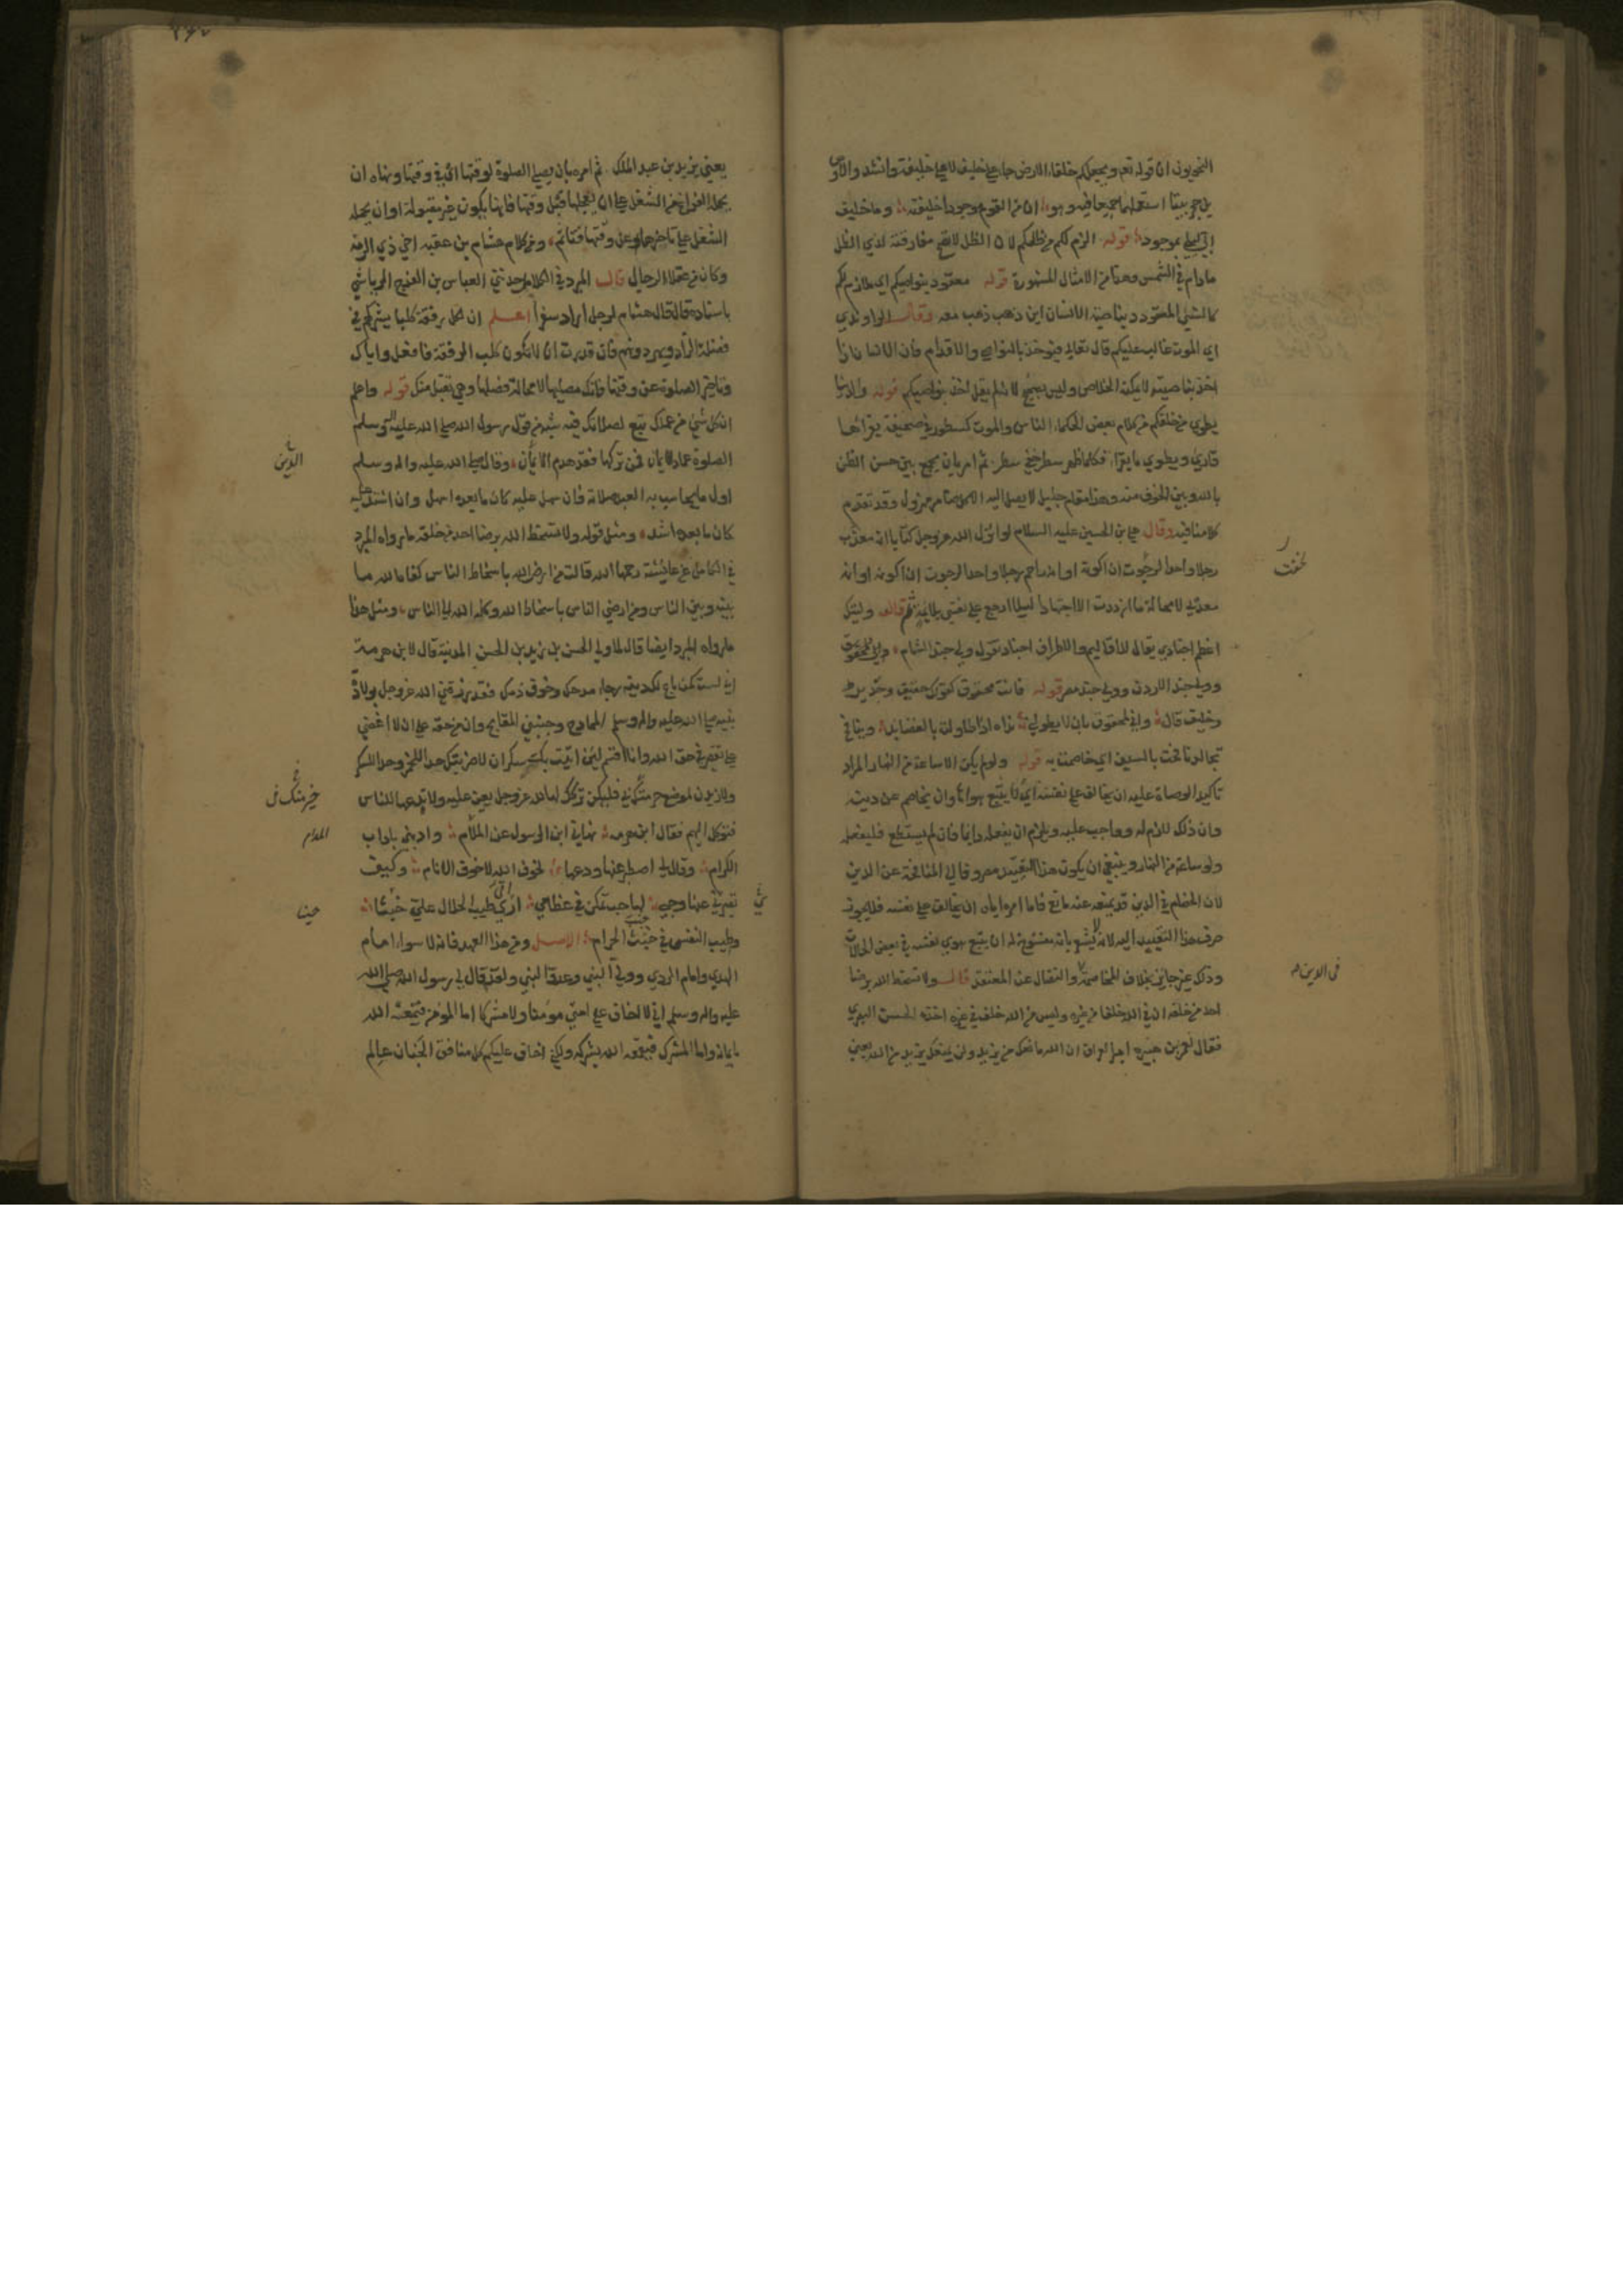 النحويون ان قوله تعم ويجعلكم خلفاء الارض جاء على خليف لا على خليفة وانشد والاوس
بن حجر بيتا استعملهما جميعا فيه وهو ان من القوم موجودا خليفته وما خليف
ابي ليلى بموجود قوله الزم لكم من ظلكم لان الظل لا يصح مفارقته لذي الظل
مادام في الشمس وهذا من الامثال المشهورة قوله معقود بنواصيكم اي ملازم لكم
كالشيء المعقود بناصية الانسان اين ذهب ذهب معه وقال الراوندي
اي الموت غالب عليكم قال تعالى فيؤخذ بالنواصي والاقدام فان الانسان اذا
اخذ بناصيته لا يمكنه الخلاص وليس بصحيح لانه لم يقل اخذ بنواصيكم قوله والدنيا
تطوى من خلفكم من كلام بعض الحكماء الناس والموت كسطور في صحيفة يقرأها
قاري ويطوي ما يقرا فكلما ظهر سطر خفي سطر ثم امره بان يجمع بين حسن الظن
بالله وبين الخوف منه وهذا مقام جليل لا يصل اليه الا كل ضامر مهزول وقد تقدم
كلامنا فيه وقال علي بن الحسين عليه السلام لو انزل الله عز وجل كتابا انه معذب
رجلا واحدا لرجوت ان اكونه او انه راحم رجلا واحدا لرجوت ان اكونه او انه
معذبي لا محالة ما ازددت الا اجتهادا ليلا ارجع على نفسي بلائمة ثم قال وليتك
اعظم اجنادي يقال للاقاليم والاطراف اجناد تقول ولي جند الشام
وولي جند الاردن وولي جند مصر قوله فانت محقوق كقولك حقيق وجدير
وخليق قال واني لمحقوق بان لا يطولني نداه اذا طاولته بالقصايد
قوله ولو لم يكن الا ساعة من النهار المراد
تاكيد الوصاة عليه ان يخالف على نفسه اي لا يتبع هواها وان يخاصم عن دينه
وان ذلك لازم له وواجب عليه ويلزم ان يفعله دايما فان لم يستطع فليفعله
ولو ساعة من النهار وينبغي ان يكون هذا التقييد مصروفا الى المنافحة عن الدين
لان الخصام في الدين قد يمنعه عنه مانع فاما امره اياه ان يخالف على نفسه فلا يجوز
صرف هذا التقييد اليه لانه يشعر بانه مفسوح له ان يتبع هوى نفسه في بعض الحالات
وذلك غير جايز بخلاف المخاصمة والنضال عن المعتقد قال ولا تسخط الله برضا
احد من خلقه ان في الله خلفا من غيره وليس من الله خلف في غيره اخذه الحسن البصري
فقال لعمر بن هبيرة امير العراق ان الله مانعك من يزيد ولن يمنعك يزيد من الله يعني
لخفت
في الدين
يعني يزيد بن عبد الملك ثم امره بان يصلي الصلوة لوقتها اي في وقتها ونهاه ان
يحمله الفراغ من الشغل على ان يعجلها قبل وقتها فانها يكون غير مقبولة او ان يحمله
الشغل على تاخيرها عن وقتها فتاثم ومن كلام هشام بن عقبه اخي ذي الرمه
وكان من عقلاء الرجال قال المبرد في الكامل حدثني العباس بن الفرج الرياشي
باسناده قال قال هشام لرجل اراد سفرا اعلم ان لكل رفقة كلبا يشركهم في
فضلة الزاد ويهر دونهم فان قدرت ان لا تكون كلب الرفقة فافعل واياك
وتاخير الصلوة عن وقتها فانك مصليها لا محالة فصلها وهي تقبل منك قوله واعلم
ان كل شيء من عملك تبع لصلاتك فيه شبه من قول رسول الله صلى الله عليه واله وسلم
الصلوة عماد الايمان فمن تركها فقد هدم الايمان وقال صلى الله عليه واله وسلم
اول ما يحاسب به العبد صلاته فان سهل عليه كان ما بعده اسهل وان اشتد عليه
كان ما بعده اشد ومثل قوله ولا تسخط الله برضا احد من خلقه ما رواه المبرد
في الكامل عن عايشة رحمها الله قالت من ارضى الله باسخاط الناس كفاه الله ما
بينه وبين الناس ومن ارضى الناس باسخاط الله وكله الله الى الناس ومثل هذا
ما رواه المبرد ايضا قال لما ولي الحسن بن زيد بن الحسن المدينة قال لابن هرمة
اني لست كمن باع لك دينه رجاء مدحك وخوف ذمك فقد رزقني الله عز وجل بولادة
نبيه صلى الله عليه واله وسلم الممادح وجنبني المقابح وان من حقه علي ان لا اغضي
على تقصير في حق الله وانا اقسم لئن اتيت بك سكران لاضربنك حدا للخمر وحدا للسكر
ولازيدن لموضع حرمتك بي فليكن تركك لها لله عز وجل يعن عليه ولا تدعها للناس
فتوكل اليهم فقال ابن هرمه نهاني ابن الرسول عن المدام وادبني باداب
الكرام وقال لي اصطبر عنها ودعها لخوف الله لا خوف الانام وكيف
تصبري عنها وحبي لها حب تمكن في عظامي ارى طيب الحلال علي خبثا
وطيب النفس في خبث الحرام الاصل ومن هذا العهد فانه لا سواء امام
الهدى وامام الردى وولي النبي وعدو النبي ولقد قال لي رسول الله صلى الله
عليه واله وسلم اني لا اخاف على امتي مؤمنا ولا مشركا اما المؤمن فيمنعه الله
بايمانه واما المشرك فيقمعه الله بشركه ولكني اخاف عليكم كل منافق الجنان عالم
الدين
المدام